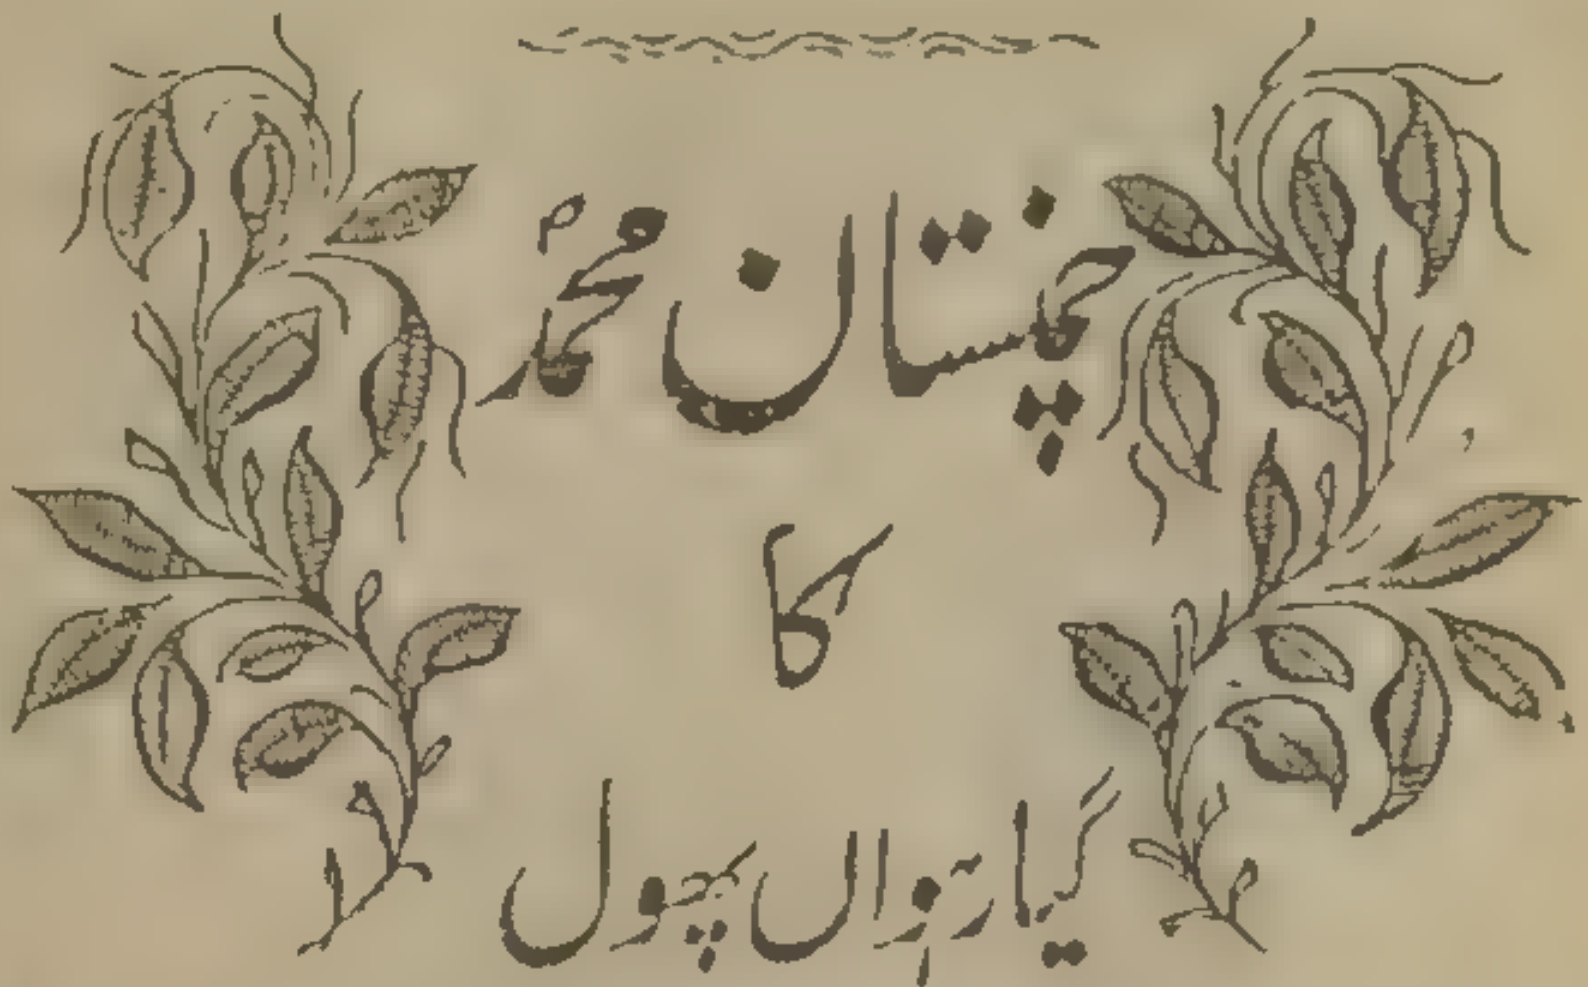 چمنستان محمدؐ
کا
گیارہواں پھول